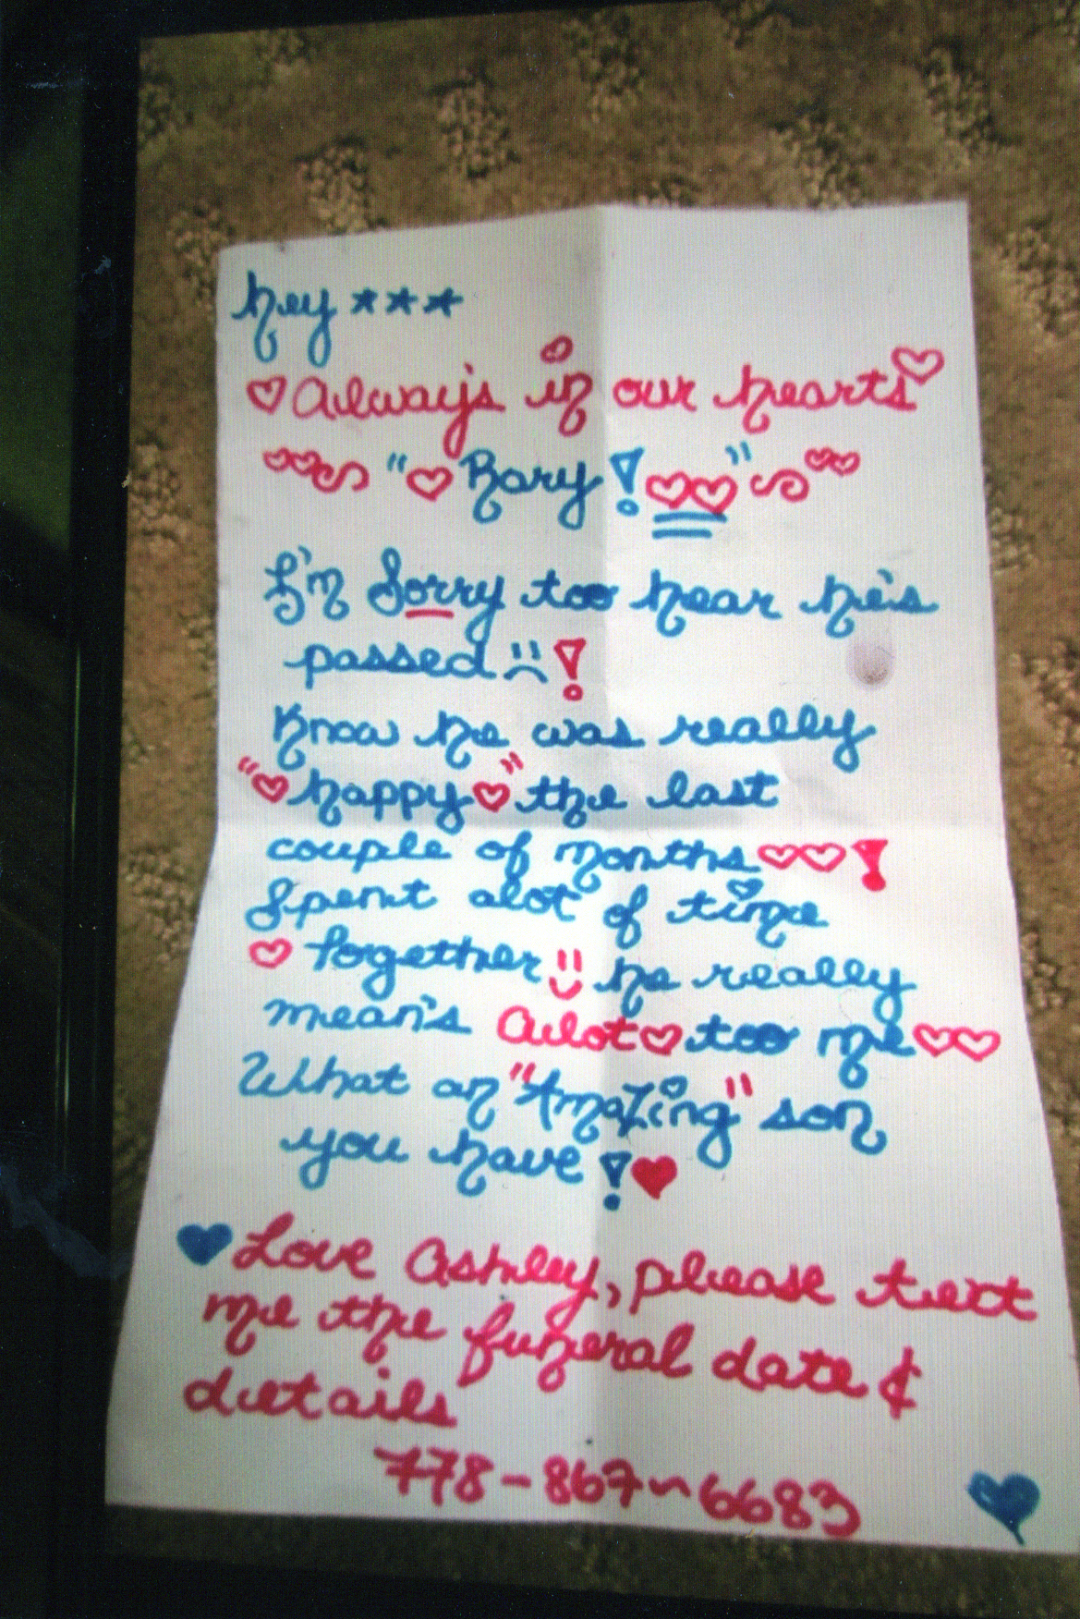 hey ★★★
♡ Always in our hearts ♡
♡♡ "♡ Rory! ♡♡" ♡♡
I'm Sorry too hear he's
passed :( !
Know he was really
"♡ happy ♡" the last
couple of months ♡♡!
Spent alot of time
♡ Together :) he really
mean's Alot ♡ too me ♡♡
What an "Amazing" son
you have! ♥
♥ Love Ashley, please text
me the funeral date &
details
778-867-6683 ♥